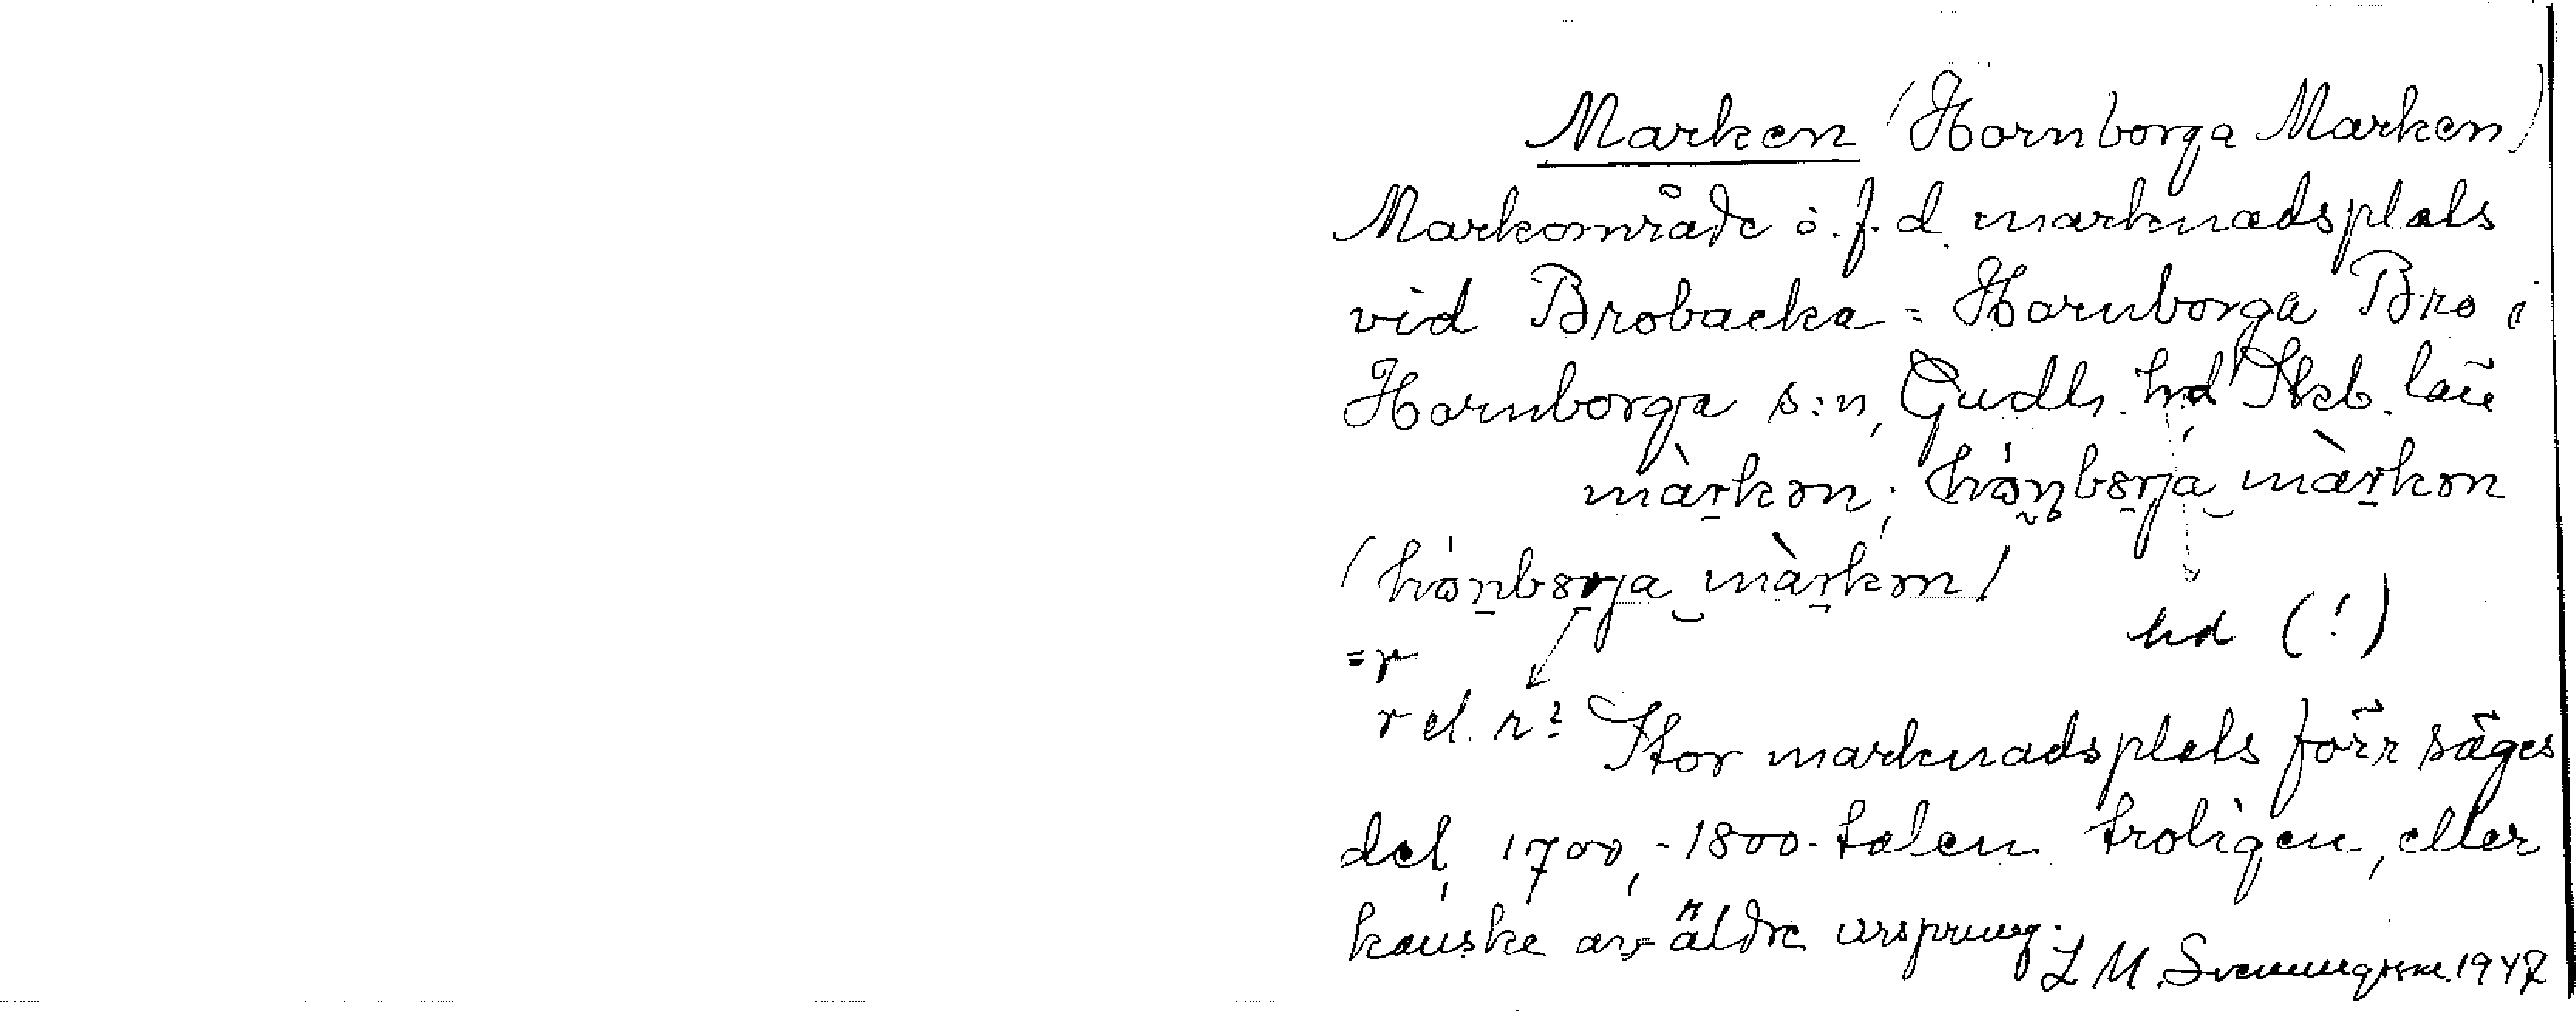 Marken (Hornborga Marken)
Markområde o. f. d. marknadsplats
vid Brobacka = Hornborga Bro i
Hornborga s:n, Gudh. hd, Skb. län
màrkən; hɷ́ṇbɵrja màrkən
(hɷ́nbɵrja màrkən)
hd (!)
=r
r el. r?
Stor marknadsplats förr säges
det, 1700,-1800-talen troligen, eller
kanske av äldre ursprung.
L M Svenungsson 1947